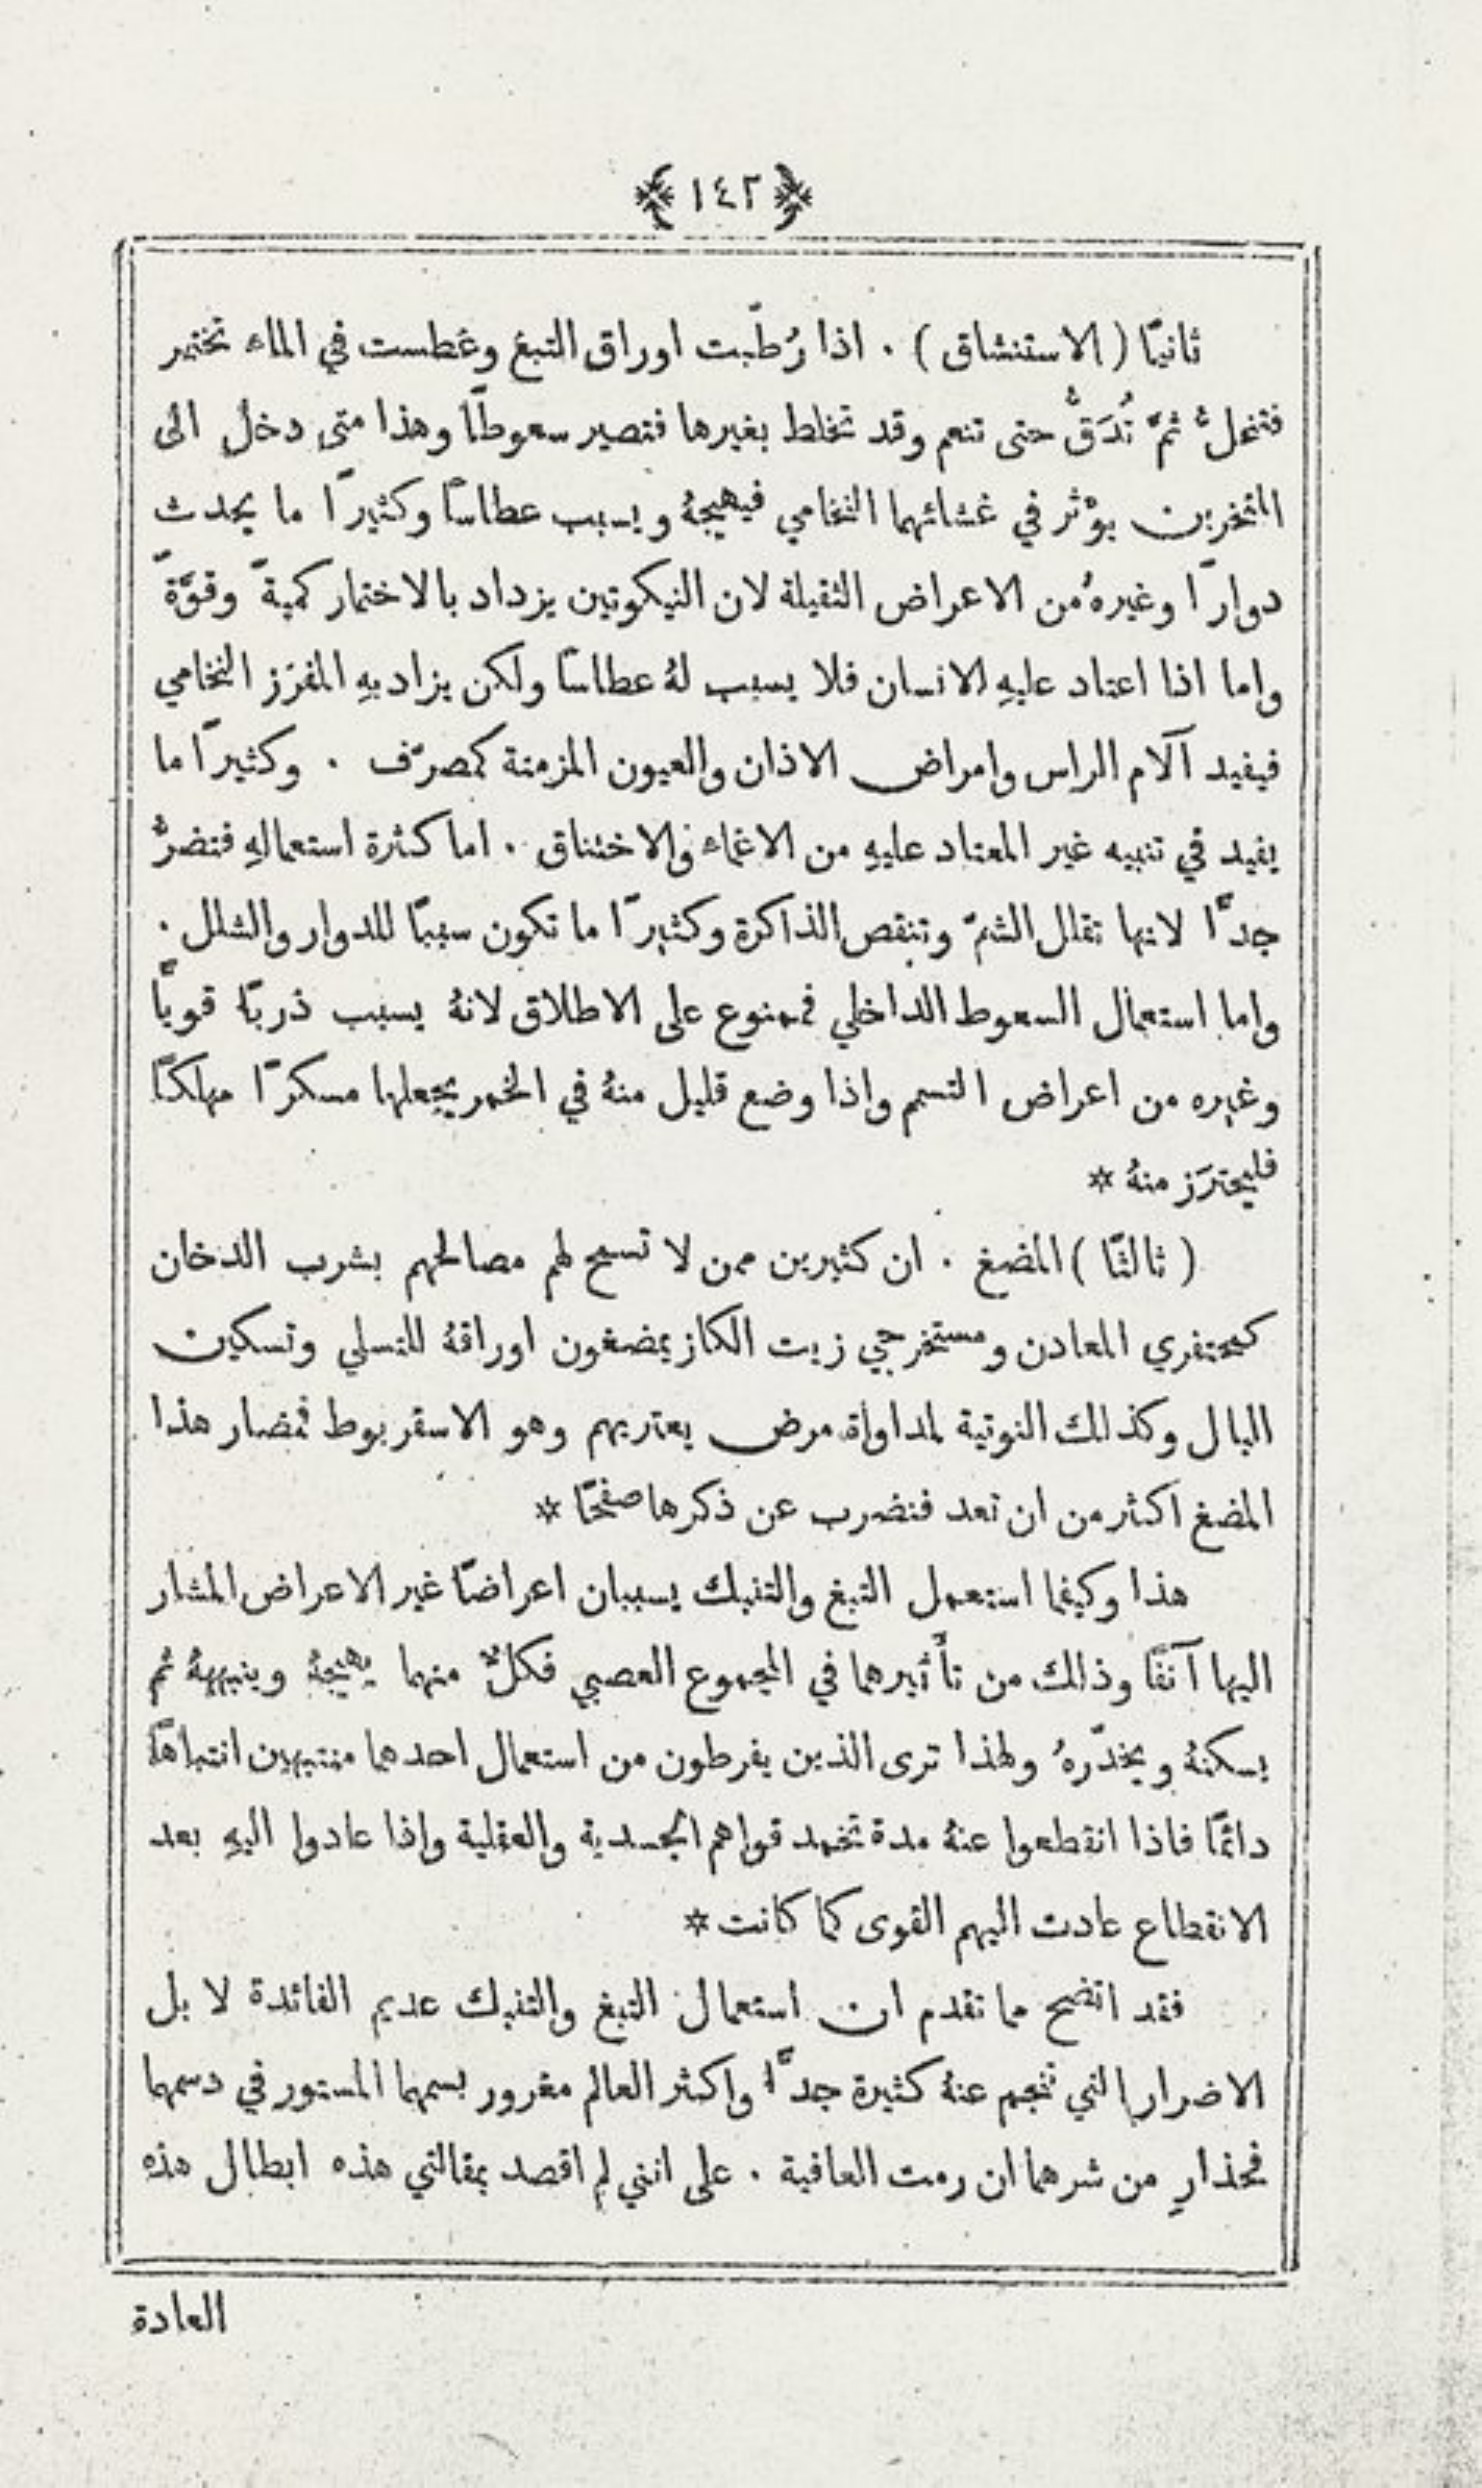 ﴿ ١٤٢ ﴾
ثانيًا ( الاستنشاق ) . اذا رُطّبت اوراق التبغ وغطست في الماء تختمر
فتنحلُّ ثمّ تُدَقُّ حتى تنعم وقد تخلط بغيرها فتصير سعوطًا وهذا متى دخل الى
المنخرين يوْثر في غشائهما النخامي فيهيجهُ ويسبب عطاسًا وكثيرًا ما يحدث
دوارًا وغيرهُ من الاعراض الثقيلة لان النيكوتين يزداد بالاختمار كميةً وقوَّةً
واما اذا اعتاد عليهِ الانسان فلا يسبب لهُ عطاسًا ولكن يزاد بهِ المفرَز النخامي
فيفيد آلام الراس وامراض الاذان والعيون المزمنة كمصرّف . وكثيرًا ما
يفيد في تنبيه غير المعتاد عليهِ من الاغماء والاختناق . اما كثرة استعمالهِ فتضرُّ
جدًّا لانها تقلل الشمّ وتنقص الذاكرة وكثيرًا ما تكون سببًا للدوار والشلل .
واما استعمال السعوط الداخلي فممنوع على الاطلاق لانهُ يسبب ذربًا قويًّا
وغيره من اعراض التسمم واذا وضع قليل منهُ في الخمر يجعلها مسكرًا مهلكًا
فليحترَز منهُ *
( ثالثًا ) المضغ . ان كثيرين ممن لا تسمح لهم مصالحهم بشرب الدخان
كمحتفري المعادن ومستخرجي زيت الكاز يمضغون اوراقهُ للتسلي وتسكين
البال وكذلك النوتية لمداواة مرض يعتريهم وهو الاسقربوط فمضار هذا
المضغ اكثر من ان تعد فنضرب عن ذكرها صفحًا *
هذا وكيفما استعمل التبغ والتنبك يسببان اعراضًا غير الاعراض المشار
اليها آنفًا وذلك من تأثيرهما في المجموع العصبي فكلٌّ منهما يهيجهُ وينبههُ ثم
يسكنهُ ويخدّرهُ ولهذا ترى الذين يفرطون من استعمال احدهما منتبهين انتباهًا
دائمًا فاذا انقطعوا عنهُ مدة تخمد قواهم الجسدية والعقلية واذا عادوا اليهِ بعد
الانقطاع عادت اليهم القوى كما كانت *
فقد اتضح مما تقدم ان استعمال التبغ والتنبك عديم الفائدة لا بل
الاضرار التي تنجم عنهُ كثيرة جدًّا واكثر العالم مغرور بسمهما المستور في دسمهما
فحذارِ من شرهما ان رمت العافية . على انني لم اقصد بمقالتي هذه ابطال هذهِ
العادة